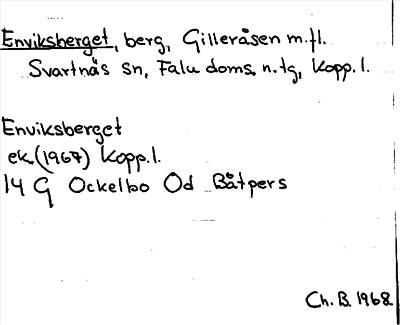 Enviksberget, berg, Gilleråsen m.fl.
Svartnäs sn, Falu doms. n. tg, Kopp. l.
Enviksberget
ek (1967) Kopp. l.
14 G Ockelbo Od Båtpers
Ch. B. 1968